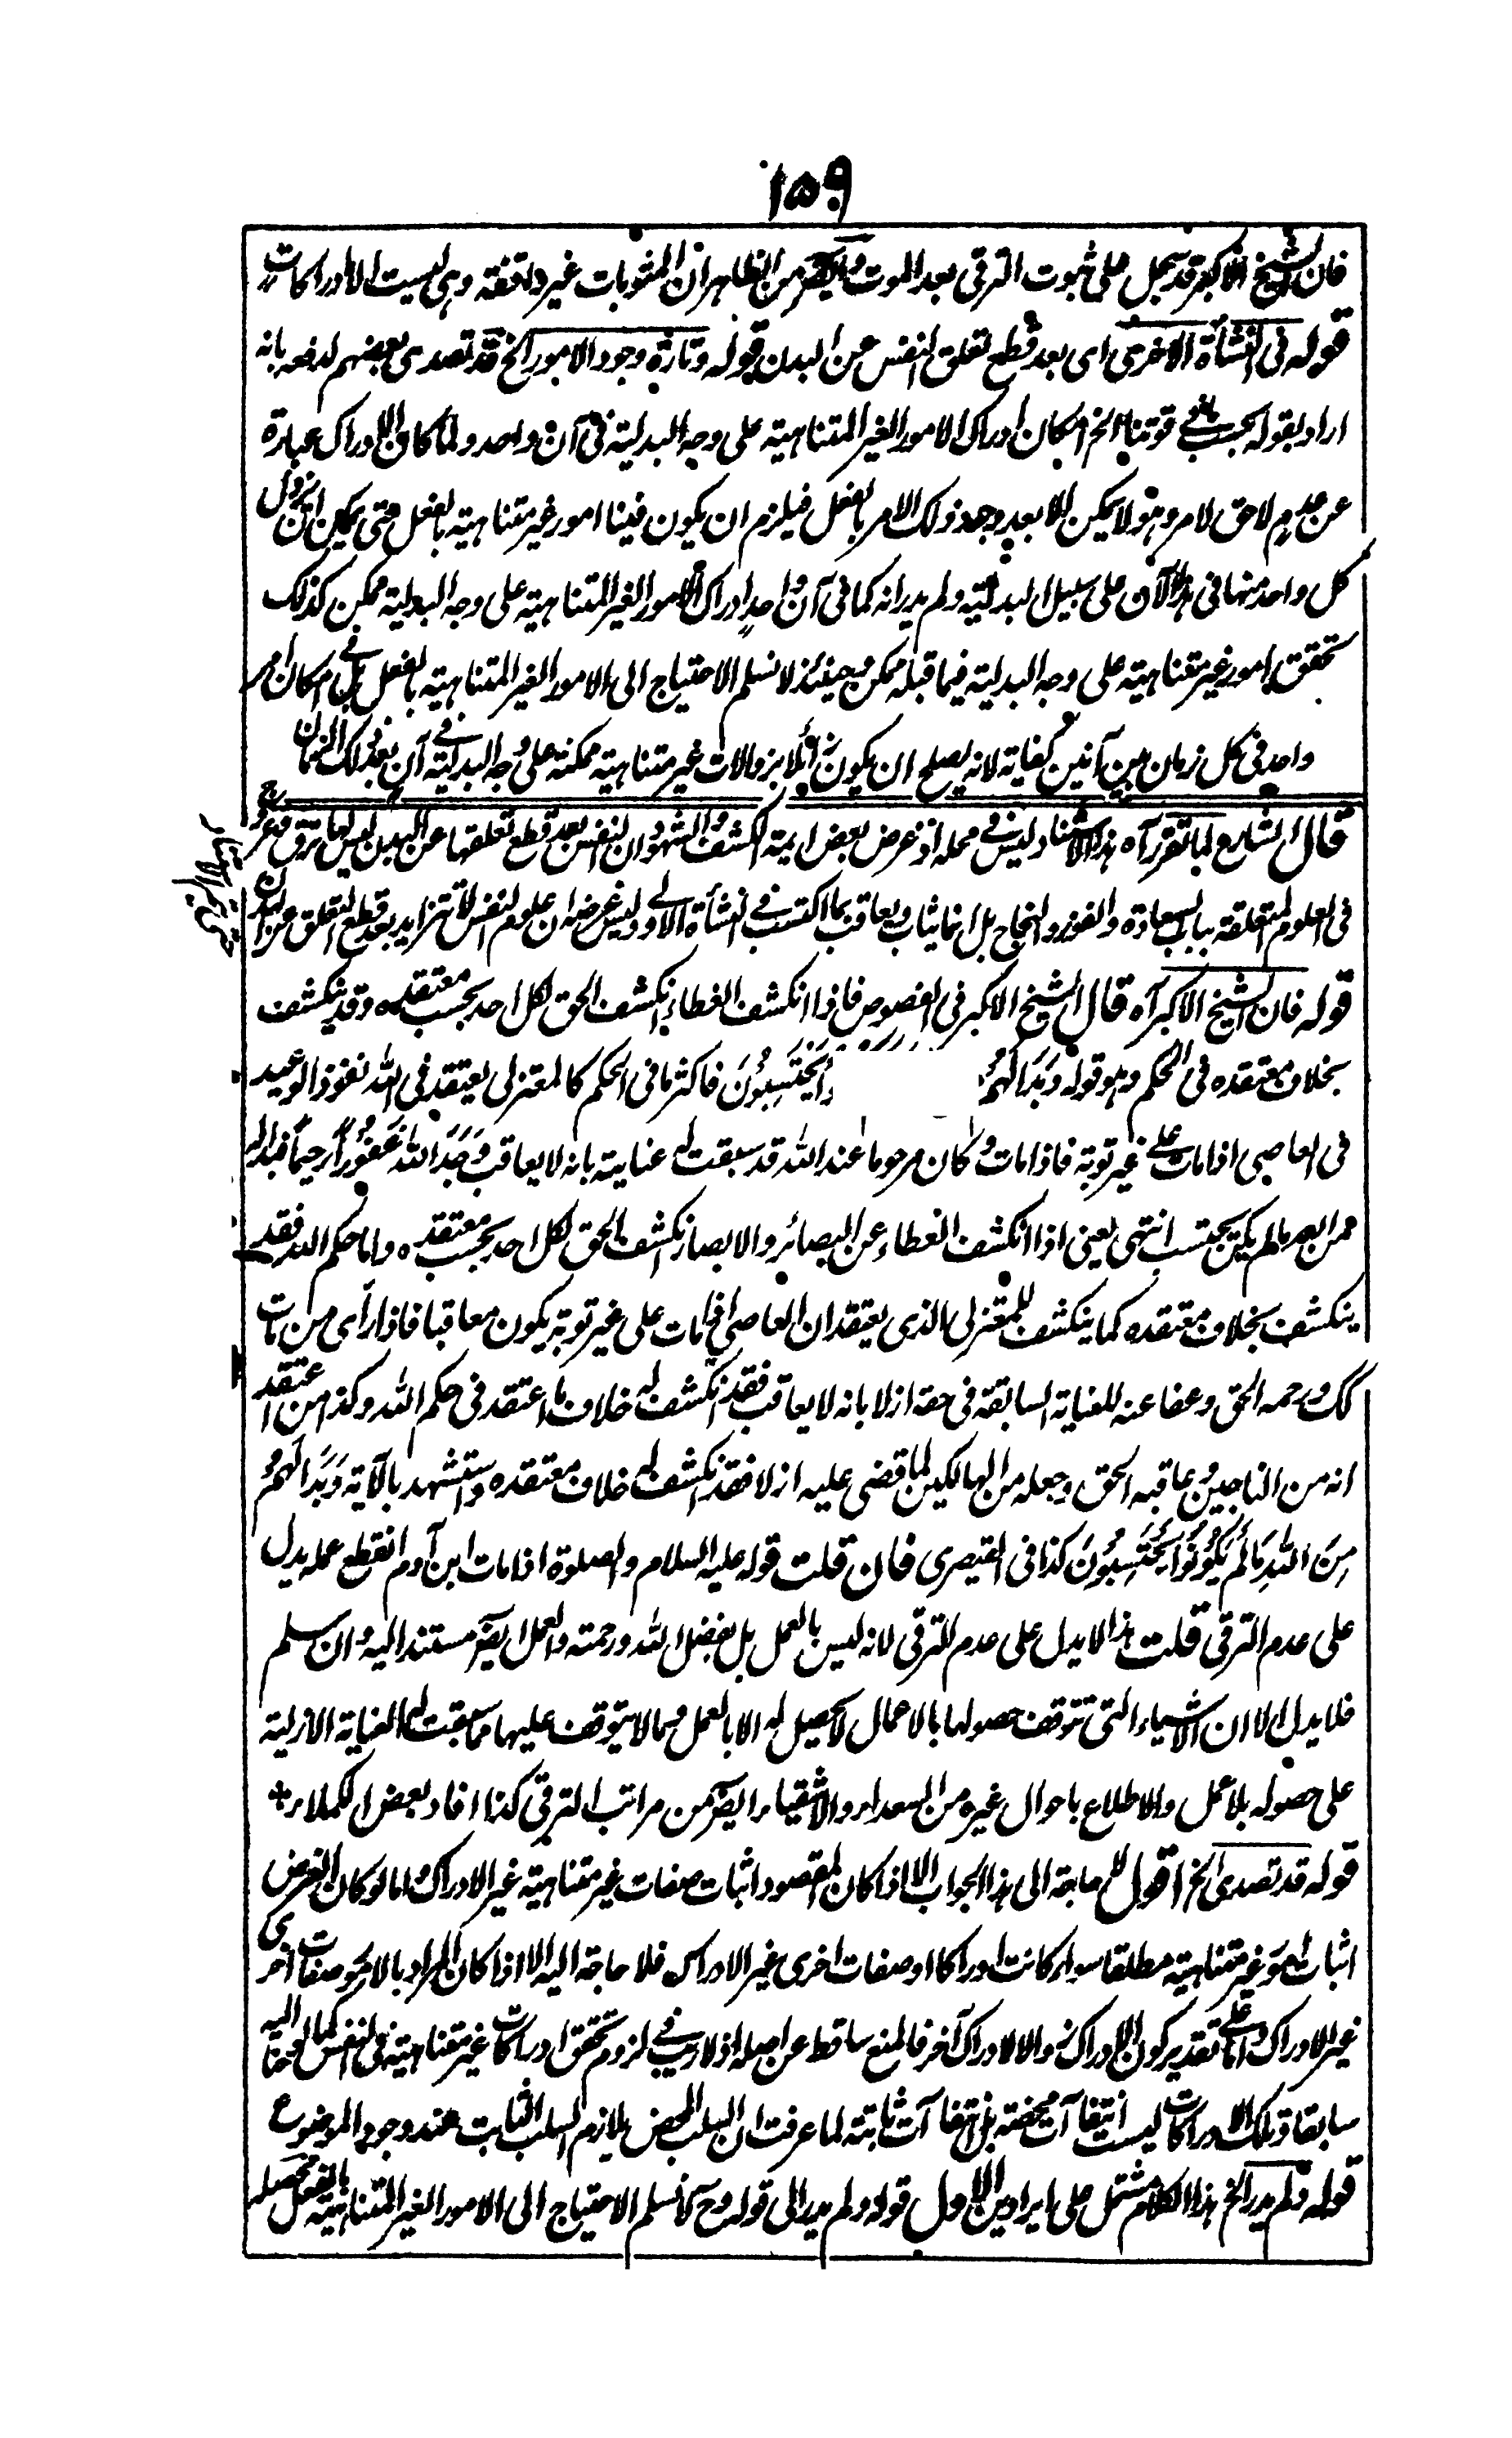 ۱۵۹
فان الشيخ الاكبر قد سجل على ثبوت الترقى بعد الموت وايضا من الظاهر ان المثوبات غير واقفة وهى ليست الا ادراكات
قوله فى النشأة الاخرى اى بعد قطع تعلق النفس عن البدن قوله وتارة وجود الامور الخ قد تصدى بعضهم لدفعه بانه
اراد بقوله بحسب ما فى قوتنا الخ امكان ادراك الامور الغير المتناهية على وجه البدلية فى آن واحد ولما كان الادراك عبارة
عن عدم لاحق لامر وهو لا يمكن الا بعد وجود ذلك الامر بالفعل فيلزم ان يكون فينا امور غير متناهية بالفعل حتى يمكن ان يزول
كل واحد منها فى هذا الآن على سبيل البدلية ولم يدر انه كما فى آن واحد ادراك الامور الغير المتناهية على وجه البدلية ممكن كذلك
تحقق امور غير متناهية على وجه البدلية فيما قبله ممكن وحينئذ لا نسلم الاحتياج الى الامور الغير المتناهية بالفعل بل فى امكان امر
واحد فى كل زمان بين آنين كفاية لانه يصلح ان يكون زائلا بزوالات غير متناهية ممكنة على وجه البدلية فى آن بعد ذلك الزمان
قال الشارح لما تقرر آه هذا الاسناد ليس فى محله اذ غرض بعض ايمة الكشف والشهود ان النفس بعد قطع تعلقها عن البدن ليس لها ترق وعروج
فى العلوم المتعلقة بباب السعادة والفوز والنجاح بل انما يثاب ويعاقب بما اكتسب فى النشأة الاولى وليس غرضه ان علوم النفس لا تتزايد بعد قطع التعلق عن البدن
قوله فان الشيخ الاكبر آه قال الشيخ الاكبر فى الفصوص فاذا انكشف الغطاء انكشف الحق لكل احد بحسب معتقده وقد ينكشف
بخلاف معتقده فى الحكم وهو قوله وَبَدَا لَهُمْ يَحْتَسِبُونَ فاكثرها فى الحكم كالمعتزلى يعتقد فى الله نفوذ الوعيد
فى العاصى اذا مات على غير توبة فاذا مات وكان مرحوما عند الله قد سبقت له عناية بانه لا يعاقب وَجَدَ اللهَ غَفُوْرًا رَحِيماً فبدا له
من الله ما لم يكن يحتسب انتهى يعنى اذا انكشف الغطاء عن البصائر والابصار انكشف الحق لكل احد بحسب معتقده واما حكم الله فقد
ينكشف بخلاف معتقده كما ينكشف للمعتزلى الذى يعتقد ان العاصى اذا مات على غير توبة يكون معاقبا فاذا رأى من مات
كك ورحمه الحق وعفا عنه للعناية السابقة فى حقه ازلا بانه لا يعاقب فقد انكشف له خلاف ما اعتقد فى حكم الله وكذا من اعتقد
انه من الناجين وعاقبه الحق وجعله من الهالكين لما قضى عليه ازلا فقد انكشف له خلاف معتقده واستشهد بالآية وَبَدَا لَهُمْ
مِنَ اللهِ مَا لَمْ يَكُوْنُوْا يَحْتَسِبُوْنَ كذا فى القيصرى فان قلت قوله عليه السلام والصلوة اذا مات ابن آدم انقطع عمله يدل
على عدم الترقى قلت هذا لا يدل على عدم الترقى لانه ليس بالعمل بل بفضل الله ورحمته والعمل ايضا مستند اليه وان سلم
فلا يدل الا ان الاشياء التى تتوقف حصولها بالاعمال لا يحصل له الا بالعمل وما لا يتوقف عليها مما سبقت له العناية الازلية
على حصوله بلا عمل والاطلاع باحوال غيره من السعداء والاشقياء ايضا من مراتب الترقى كذا افاد بعض الكملاء
قوله قد تصدى الخ اقول لا حاجة الى هذا الجواب الا اذا كان المقصود اثبات صفات غير متناهية غير الادراك واما لو كان الغرض
اثبات امور غير متناهية مطلقا سواء كانت ادراكا او صفات اخرى غير الادراك فلا حاجة اليه الا اذا كان المراد بالامور صفات اخرى
غير الادراك واما على تقدير كون الادراك زوالا لادراك آخر فالمنع ساقط عن اصله اذ لا ريب فى لزوم تحقق ادراكات غير متناهية فى النفس كما لوحنا اليه
سابقا وتلك الادراكات ليست انتفاآت محضة بل انتفاآت ثابتة لما عرفت ان السلب المحض يلازم السلب الثابت عند وجود الموضوع
قوله ولم يدر الخ هذا الكلام مشتمل على ايرادين الاول قوله ولم يدر الى قوله وح لا نسلم الاحتياج الى الامور الغير المتناهية بالفعل محصله